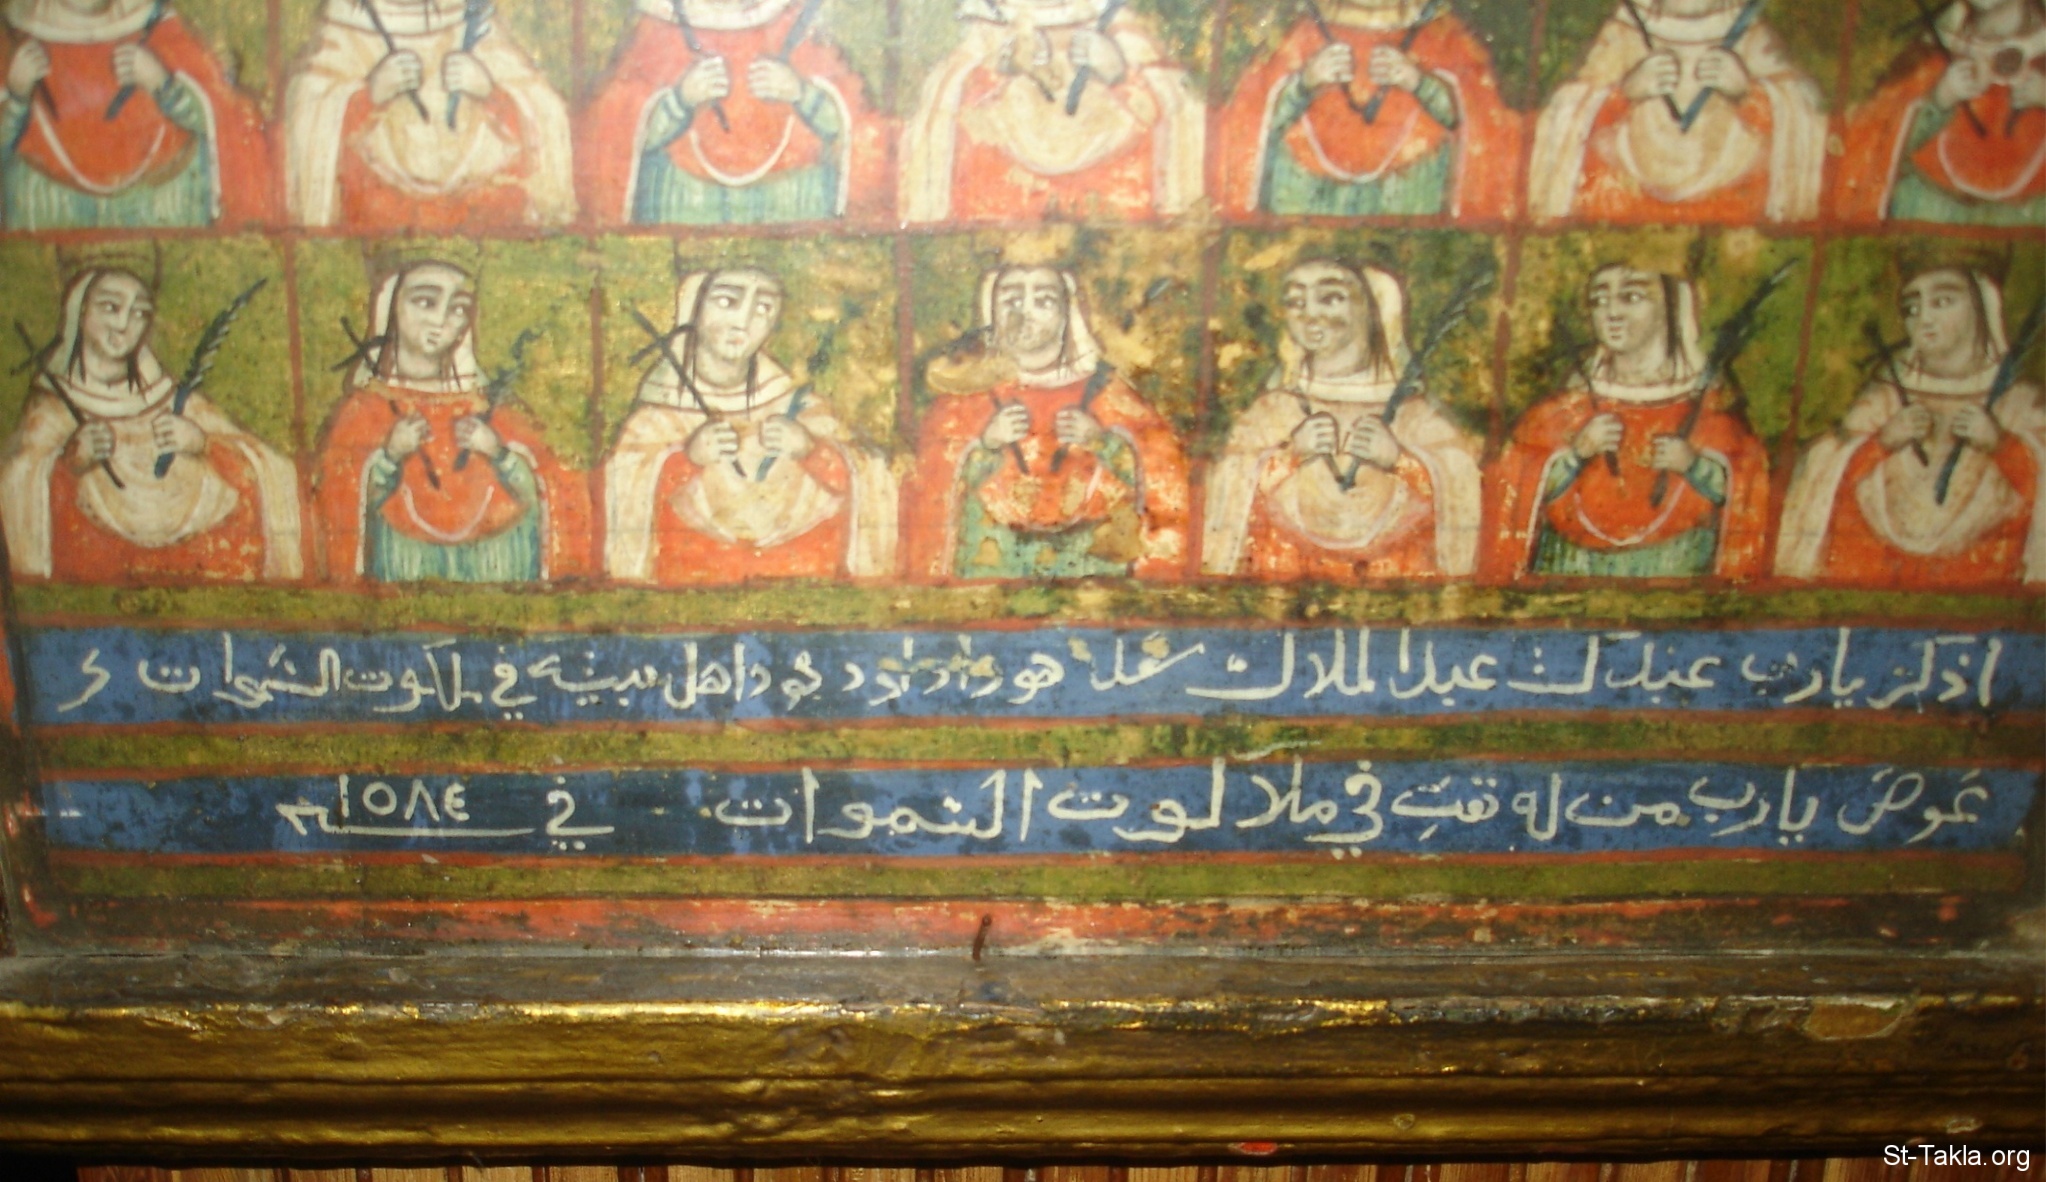 اذكر يارب عبدك عبد الملاك هو واولاده واهل بيته في ملكوت السموات
عوض يارب من له تعب في ملاكوت السموات في سنة ١٥٨٤
St-Takla.org